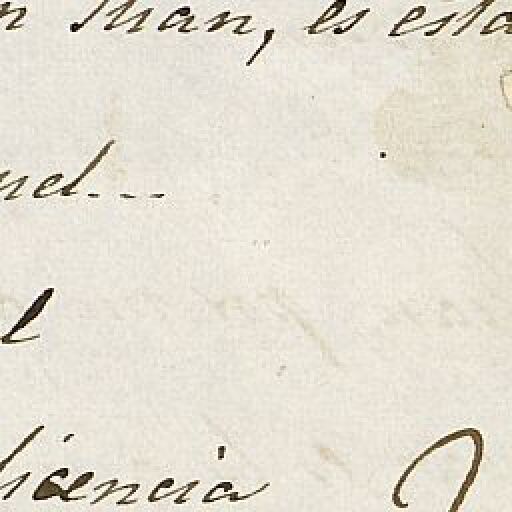 n Man, es esta
nel...
l
licencia